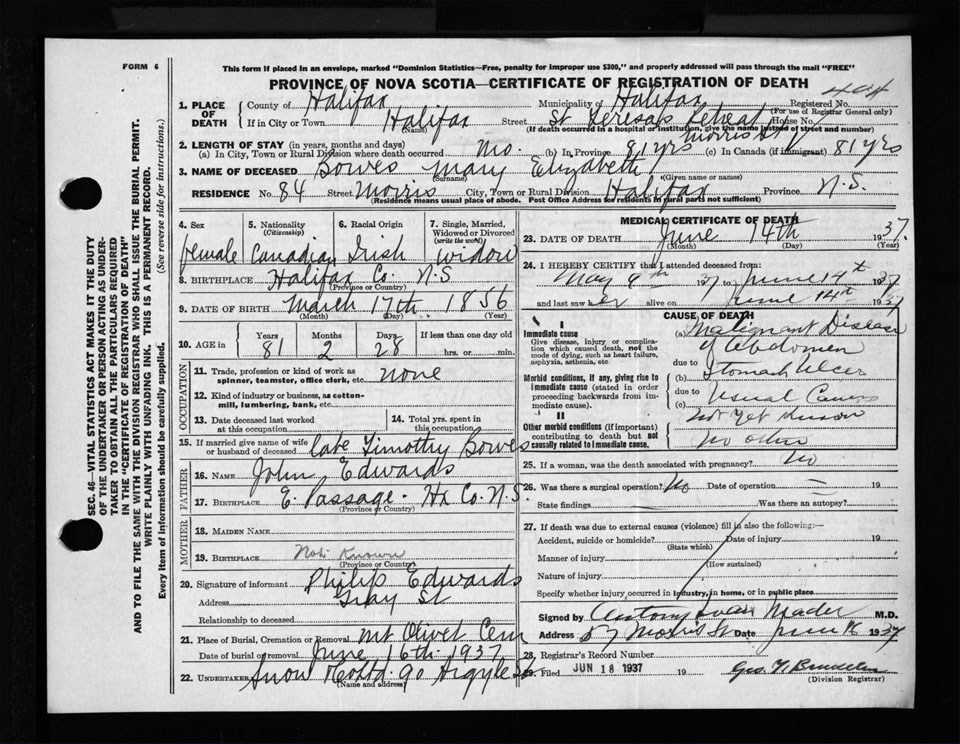 FORM 6
This form if placed in an envelope, marked "Dominion Statistics—Free, penalty for improper use $300," and properly addressed will pass through the mail "FREE"
PROVINCE OF NOVA SCOTIA—CERTIFICATE OF REGISTRATION OF DEATH
SEC. 46—VITAL STATISTICS ACT MAKES IT THE DUTY
OF THE UNDERTAKER OR PERSON ACTING AS UNDER-
TAKER TO OBTAIN ALL THE PARTICULARS REQUIRED
IN THE "CERTIFICATE OF REGISTRATION OF DEATH"
AND TO FILE THE SAME WITH THE DIVISION REGISTRAR WHO SHALL ISSUE THE BURIAL PERMIT.
WRITE PLAINLY WITH UNFADING INK. THIS IS A PERMANENT RECORD.
Every item of information should be carefully supplied. (See reverse side for instructions.)
1. PLACE OF DEATH County of Halifax Municipality of Halifax Registered No.
(For use of Registrar General only)
If in City or Town Halifax Street St Teresa's Retreat House No.
(Name) (If death occurred in a hospital or institution, give the name instead of street and number)
Morris St
2. LENGTH OF STAY (in years, months and days)
(a) In City, Town or Rural Division where death occurred Mo. (b) In Province 81 yrs (c) In Canada (if immigrant) 81 yrs
3. NAME OF DECEASED Bowes Mary Elizabeth
(Surname) (Given name or names)
RESIDENCE No. 84 Street Morris City, Town or Rural Division Halifax Province N.S.
(Residence means usual place of abode. Post Office Address for residents in rural parts not sufficient)
4. Sex 5. Nationality (Citizenship) 6. Racial Origin 7. Single, Married, Widowed or Divorced (write the word)
female Canadian Irish widow
8. BIRTHPLACE Halifax Co. N.S
(Province or Country)
9. DATE OF BIRTH March 17th 1856
(Month) (Day) (Year)
10. AGE in Years Months Days If less than one day old
81 2 28 hrs. or min.
OCCUPATION
11. Trade, profession or kind of work as
spinner, teamster, office clerk, etc. none
12. Kind of industry or business, as cotton-
mill, lumbering, bank, etc.
13. Date deceased last worked at this occupation
14. Total yrs. spent in this occupation
15. If married give name of wife
or husband of deceased late Timothy Bowes
FATHER
16. NAME John Edwards
17. BIRTHPLACE E. Passage - Hx Co. N.S.
(Province or Country)
MOTHER
18. MAIDEN NAME
19. BIRTHPLACE Not Known
(Province or Country)
20. Signature of informant Philip Edwards
Address Gray St
Relationship to deceased
21. Place of Burial, Cremation or Removal Mt Olivet Cem
Date of burial or removal June 16th 1937
22. UNDERTAKER Snow &Co Ltd. 90 Argyle St
(Name and address)
MEDICAL CERTIFICATE OF DEATH
23. DATE OF DEATH June 14th 1937.
(Month) (Day) (Year)
24. I HEREBY CERTIFY that I attended deceased from:
May 9th 1937 June 14th 1937
and last saw her alive on June 14th 1937
CAUSE OF DEATH
I
Immediate cause
Give disease, injury or complica-
tion which caused death, not the
mode of dying, such as heart failure,
asphyxia, asthenia, etc.
(a) Malignant Disease
of Abdomen
due to
Morbid conditions, if any, giving rise to
immediate cause (stated in order
proceeding backwards from im-
mediate cause).
(b) Stomach Ulcer
due to Usual Causes
(c) not Yet Known
II
Other morbid conditions (if important)
contributing to death but not
causally related to immediate cause.
no other
25. If a woman, was the death associated with pregnancy? No
26. Was there a surgical operation? No Date of operation 19
State findings Was there an autopsy?
27. If death was due to external causes (violence) fill in also the following:—
Accident, suicide or homicide? Date of injury 19
(State which)
Manner of injury
(How sustained)
Nature of injury
Specify whether injury occurred in industry, in home, or in public place
Signed by Antony Ivan Mader M.D.
Address 57 Morris St Date June 16 1937
28. Registrar's Record Number
29. Filed JUN 18 1937 19
(Division Registrar)